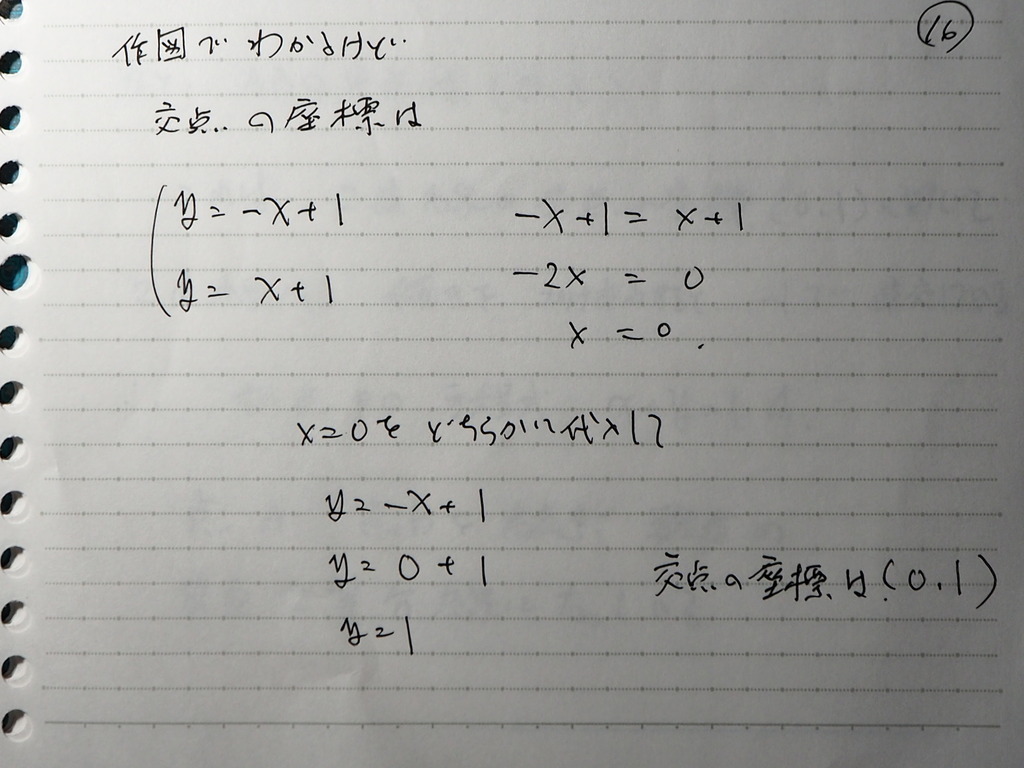 ⑯
作図でわかるけど
交点の座標は
y = -x + 1
y = x + 1
-x + 1 = x + 1
-2x = 0
x = 0.
x = 0を どちらかに代入して
y = -x + 1
y = 0 + 1
y = 1
交点の座標は(0.1)